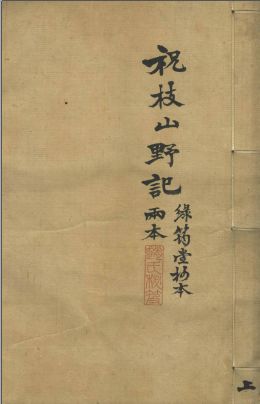 祝枝山野記
綠筠堂抄本
兩本
上